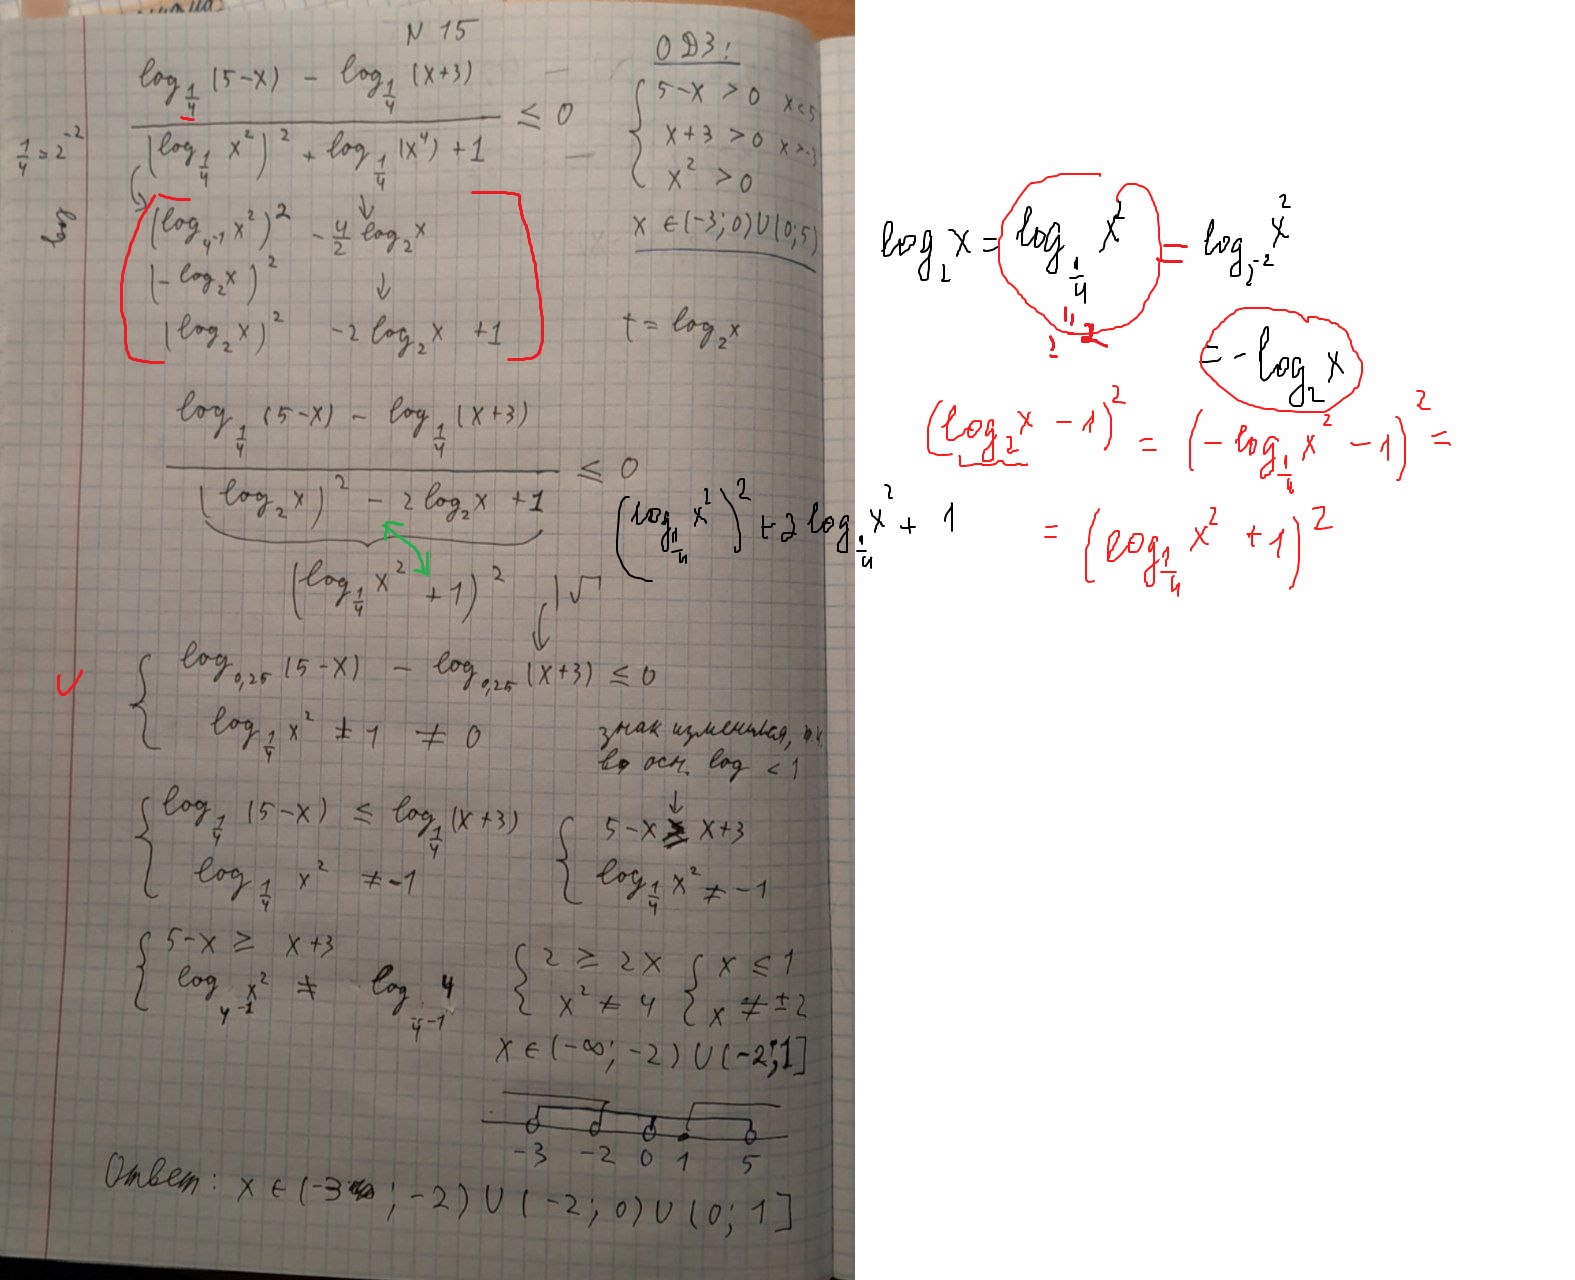 N 15
log_{1/4} (5-x) - log_{1/4} (x+3)
(log_{1/4} x²)² + log_{1/4} (x⁴) + 1
≤ 0
ОДЗ:
5-x > 0 x<5
x+3 > 0 x>-3
x² > 0
x ∈ (-3; 0) ∪ (0; 5)
1/4 = 2⁻²
log
(log_{4⁻¹} x²)² - 4/2 log₂x
(-log₂x)²
(log₂x)² - 2 log₂x + 1
t = log₂x
log_{1/4} (5-x) - log_{1/4} (x+3)
(log₂x)² - 2 log₂x + 1
≤ 0
(log_{1/4} x² + 1)² |√
(log_{1/4} x²)² + 2 log_{1/4} x² + 1
log_{0,25} (5-x) - log_{0,25} (x+3) ≤ 0
log_{1/4} x² ± 1 ≠ 0
знак изменился, т.к.
осн. log < 1
log_{1/4} (5-x) ≤ log_{1/4} (x+3)
log_{1/4} x² ≠ -1
5-x ≥ x+3
log_{1/4} x² ≠ -1
5-x ≥ x+3
log_{4⁻¹} x² ≠ log_{4⁻¹} 4
2 ≥ 2x
x² ≠ 4
x ≤ 1
x ≠ ±2
x ∈ (-∞; -2) ∪ (-2; 1]
-3 -2 0 1 5
Ответ: x ∈ (-3; -2) ∪ (-2; 0) ∪ (0; 1]
log₂x = log_{1/4} x² = log_{2⁻²} x²
= -log₂x
(log₂x - 1)² = (-log_{1/4} x² - 1)² =
= (log_{1/4} x² + 1)²